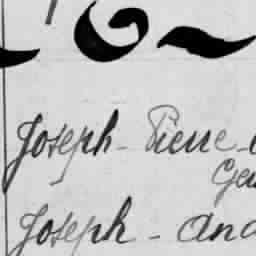 Joseph - Pierre -
Joseph - And